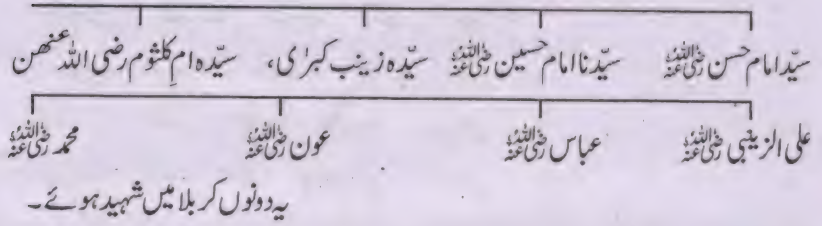 سیّد امام حسن رضی اللہ عنہ سیّدنا امام حسین رضی اللہ عنہ سیّدہ زینب کبرٰی، سیّدہ ام کلثوم رضی اللہ عنھن
علی الزینبی رضی اللہ عنہ عباس رضی اللہ عنہ عون رضی اللہ عنہ محمد رضی اللہ عنہ
یہ دونوں کربلا میں شہید ہوئے۔